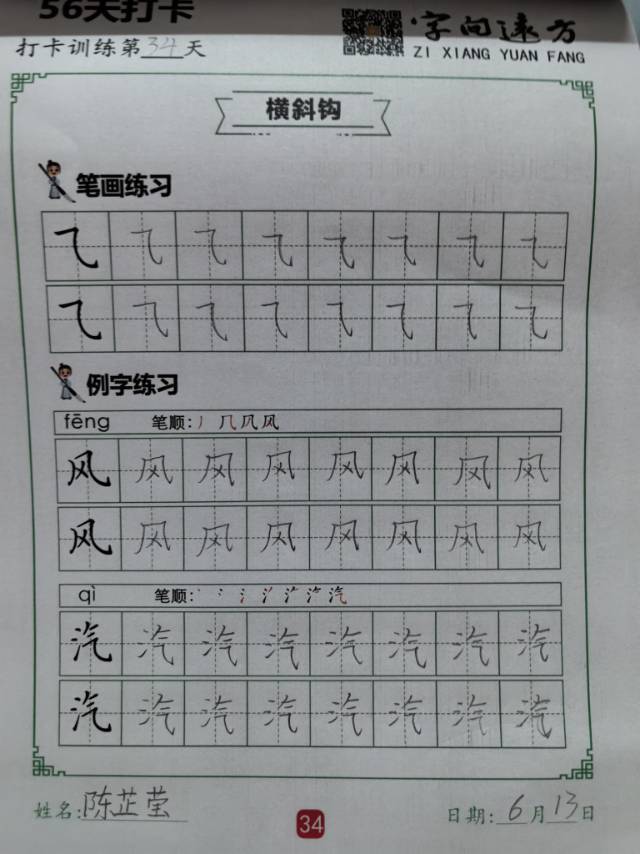 56天打卡
打卡训练第34天
字向远方
ZI XIANG YUAN FANG
横斜钩
笔画练习
⺄ ⺄ ⺄ ⺄ ⺄ ⺄ ⺄ ⺄
⺄ ⺄ ⺄ ⺄ ⺄ ⺄ ⺄ ⺄
例字练习
fēng 笔顺: 丿 几 凤 风
风 风 风 风 风 风 风 风
风 风 风 风 风 风 风 风
qì 笔顺:
汽 汽 汽 汽 汽 汽 汽 汽
汽 汽 汽 汽 汽 汽 汽 汽
姓名: 陈芷莹
34
日期: 6月13日